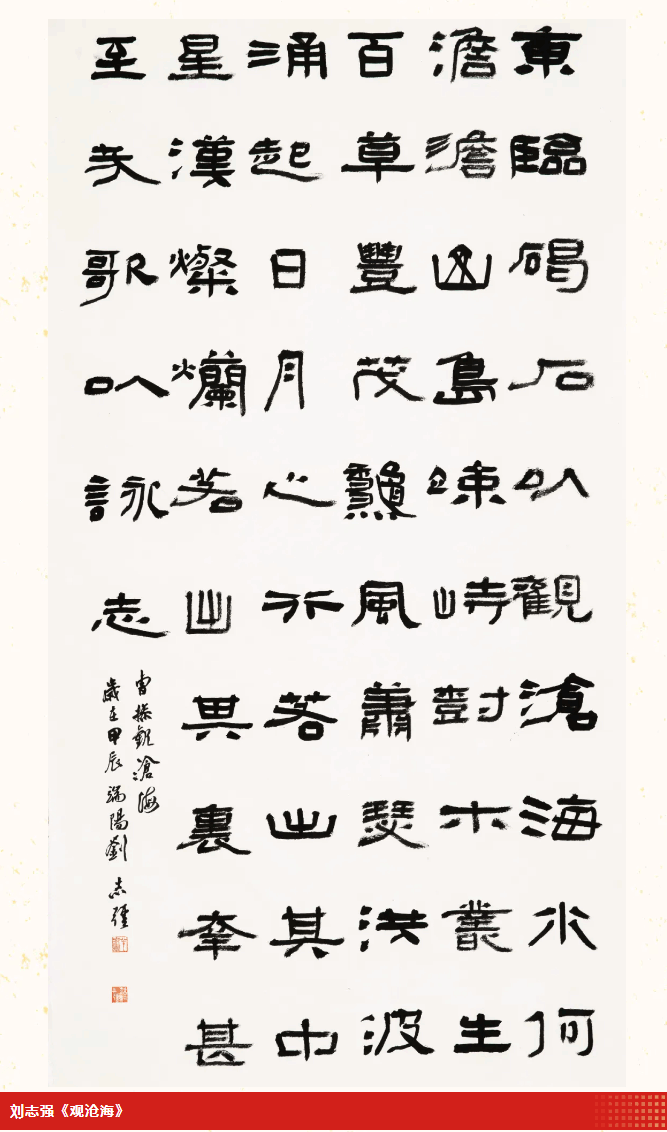 東臨碣石以觀滄海水何
澹澹山島竦峙尌木叢生
百草豐茂龝風蕭瑟洪波
涌起日月之行若出其中
星漢燦爛若出其裏幸甚
至哉歌以詠志
曹操觀滄海
歲在甲辰端陽劉志強
刘志强《观沧海》